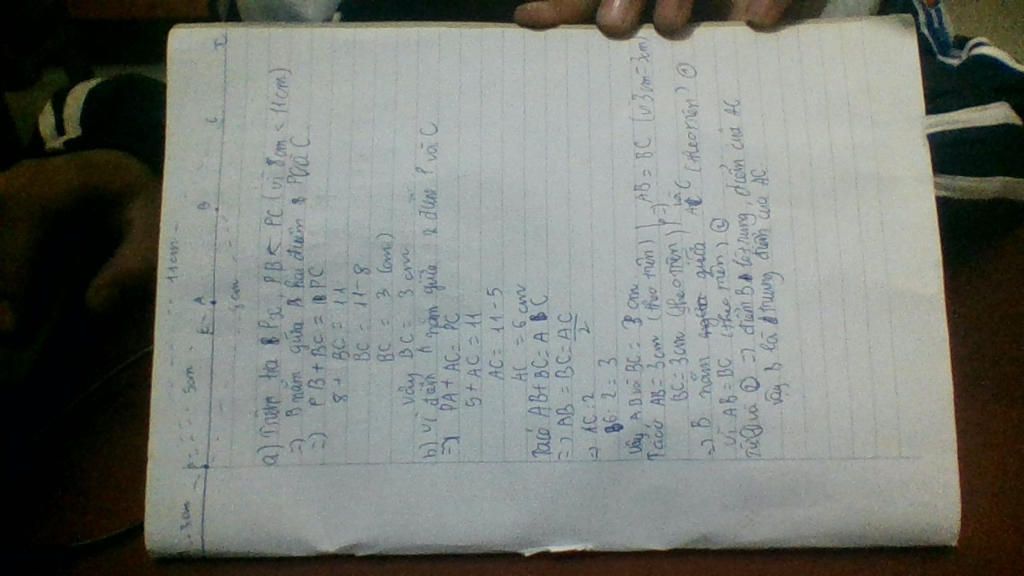 11cm
3cm P 5cm A B C x
8cm
a) Trên tia Px, PB < PC (vì 8cm < 11cm)
=> B nằm giữa hai điểm P và C
=> PB + BC = PC
8 + BC = 11
BC = 11 - 8
BC = 3 (cm)
Vậy BC = 3 cm
b) Vì điểm A nằm giữa 2 điểm P và C
=> PA + AC = PC
5 + AC = 11
AC = 11 - 5
AC = 6 cm
Ta có AB + BC = AC
=> AB = BC = AC/2
=> AC : 2
6 : 2 = 3
Vậy AB và BC = 3 cm
Ta có AB = 3cm (theo trên) } => AB = BC (vì 3cm = 3cm)
BC = 3cm (theo trên)
=> B nằm giữa A và C (theo trên) ①
Vì AB = BC (theo trên) ②
Từ ① và ② => điểm B là trung điểm của AC
Vậy B là trung điểm của AC